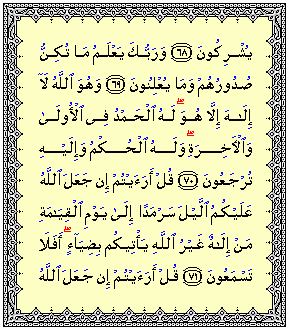 يُشْرِكُونَ ٦٨ وَرَبُّكَ يَعْلَمُ مَا تُكِنُّ
صُدُورُهُمْ وَمَا يُعْلِنُونَ ٦٩ وَهُوَ ٱللَّهُ لَآ
إِلَٰهَ إِلَّا هُوَۖ لَهُ ٱلْحَمْدُ فِى ٱلْأُولَىٰ
وَٱلْأَخِرَةِۖ وَلَهُ ٱلْحُكْمُ وَإِلَيْهِ
تُرْجَعُونَ ٧٠ قُلْ أَرَءَيْتُمْ إِن جَعَلَ ٱللَّهُ
عَلَيْكُمُ ٱلَّيْلَ سَرْمَدًا إِلَىٰ يَوْمِ ٱلْقِيَٰمَةِ
مَنْ إِلَٰهٌ غَيْرُ ٱللَّهِ يَأْتِيكُم بِضِيَآءٍۖ أَفَلَا
تَسْمَعُونَ ٧١ قُلْ أَرَءَيْتُمْ إِن جَعَلَ ٱللَّهُ